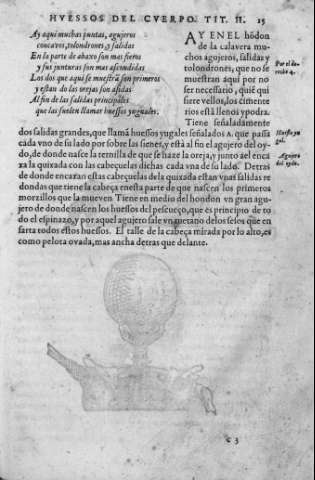 HVESSOS DEL CVERPO. TIT. II. 15
Ay aqui muchas juntas, agujeros
concaves, tolondrones, y salidas
En la parte de abaxo son mas fieros
y sus junturas son mas ascondidas
Los dos que aqui se muestrã son primeros
y estan do las orejas son asidas
Al fin de las salidas principales
que las suelen llamar huessos yuguales.
AY EN EL hõdon
de la calavera mu-
chos agujeros, salidas y
tolondrones, que no se
muestran aqui por no
ser necessario, quiē qui
siere vellos, los cimente
rios estã llenos y podra.
Tiene señaladamente
dos salidas grandes, que llamã huessos yugales señalados A. que passa
cada vno de su lado por sobre las sienes, y està al fin el agujero del oy-
do, de donde nasce la ternilla de que se haze la oreja, y junto ael enca
xa la quixada con las cabeçuelas dichas cada vna de su lado. Detras
de donde encaxan estas cabeçuelas dela quixada estan vnas salidas re
dondas que tiene la cabeça enesta parte de que nascen los primeros
morzillos que la mueven Tiene en medio del hondon vn gran agu-
jero de donde nascen los huessos del pescueço, que es principio de to
do el espinazo, y por aquel agujero sale vn metano delos sesos que en
sarta todos estos huessos. El talle de la cabeça mirada por lo alto, es
como pelota ovada, mas ancha detras que delante.
Huesso yu
gal.
Agujero
del oydo.
C 3